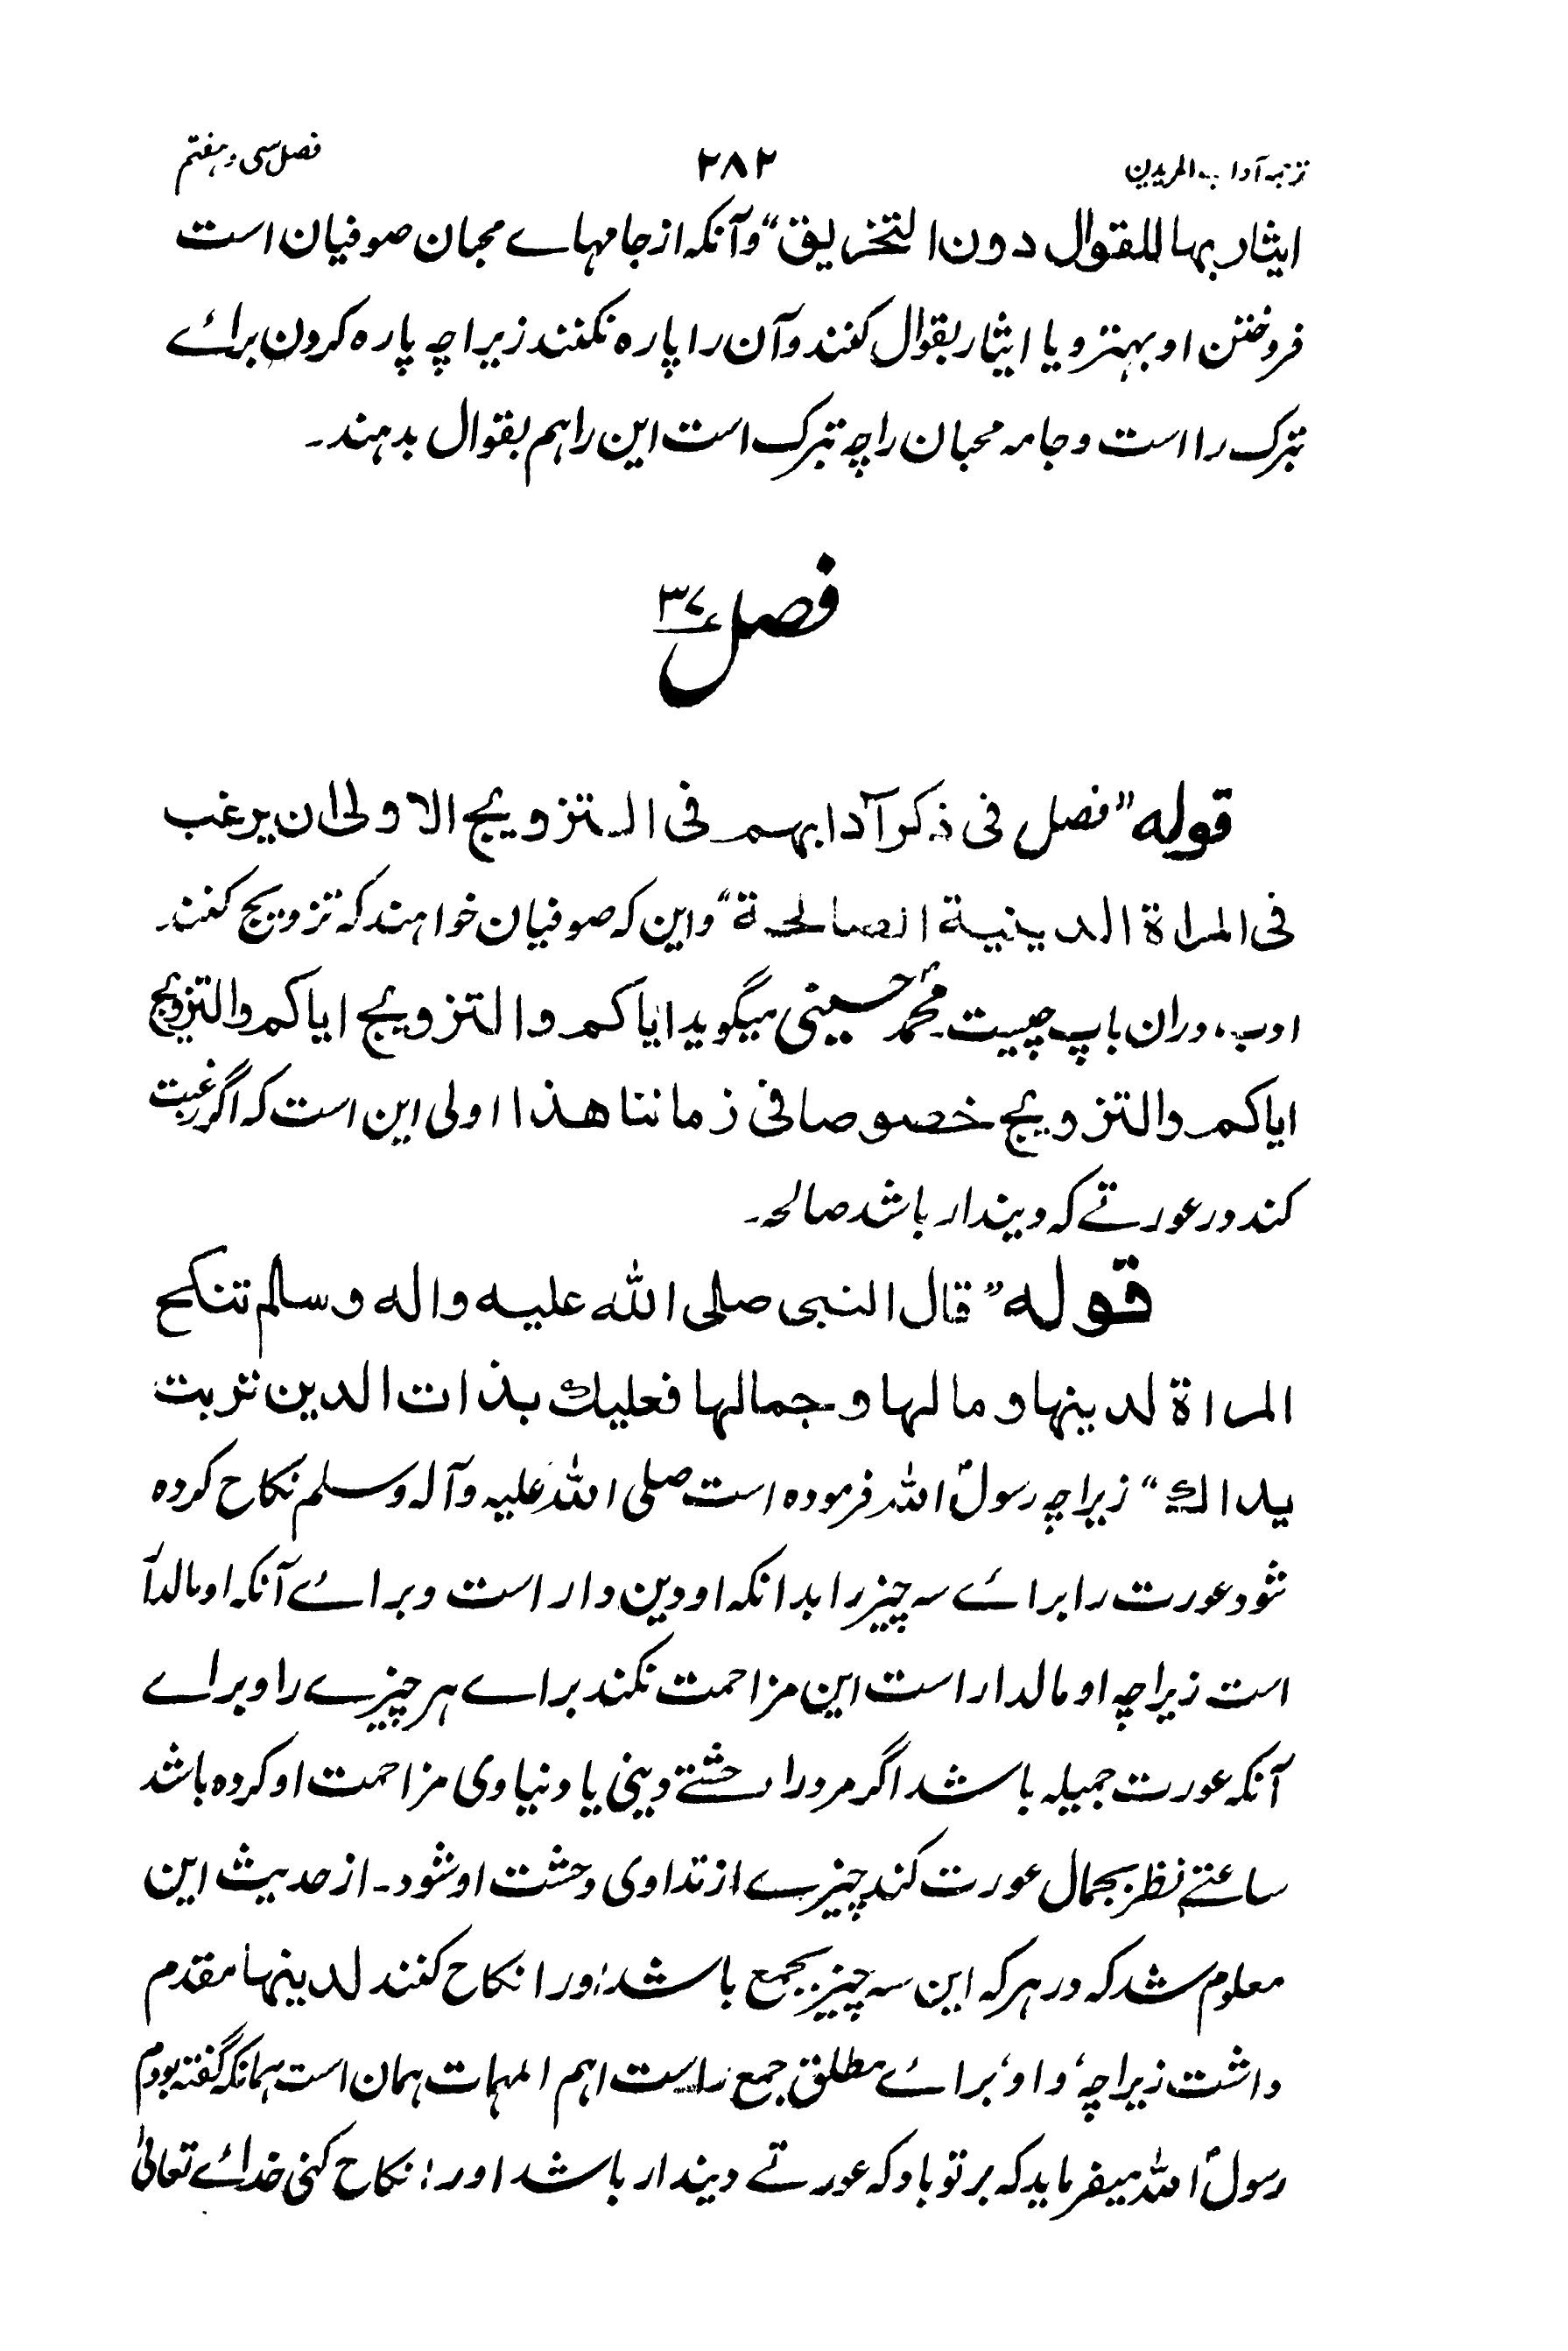 ترجمه آداب المریدین ۲۸۲ فصل سی و هفتم
ایثار بها للقوال دون التخریق" وآنکه از جامهاے محبان صوفیان است
فروختن او بهتر و یا ایثار بقوال کنند وآن را پاره نکنند زیراچه پاره کردن برائے
تبرک را است وجامه محبان را چه تبرک است این را هم بقوال بدهند۔
فصل ۳۷
قوله "فصل فی ذکر آدابهم فی التزویج الاولی ان یرغب
فی المراة الدینیة الصالحة" واین که صوفیان خواهند که تزویج کنند۔
ادب دران باب چیست۔ محمد حسینی میگوید ایاکم والتزویج ایاکم والتزویج
ایاکم والتزویج خصوصا فی زماننا هذا اولی این است که اگر رغبت
کند در عورتے که دیندار باشد صالحه۔
قوله "قال النبی صلی الله علیه واله وسلم تنکح
المراة لدینها ومالها وجمالها فعلیك بذات الدین تربت
یداك" زیراچه رسول الله فرموده است صلی الله علیه وآله وسلم نکاح کرده
شود عورت را برائے سه چیز را بدانکه او دین دار است وبرائے آنکه او مالدار
است زیراچه او مالدار است این مزاحمت نکند براے هر چیزے را وبراے
آنکه عورت جمیله باشد اگر مرد را وحشتے دینی یا دنیاوی مزاحمت او کرده باشد
ساعتے نظر بجمال عورت کند چیزے از تداوی وحشت او شود۔ از حدیث این
معلوم شد که در هر که این سه چیز بجمع باشد اورا نکاح کنند لدینها مقدم
داشت زیراچه ’واو‘ برائے مطلق جمع راست اهم المهمات همان است همانکه گفته بودم
رسول الله میفرماید که بر تو باد که عورتے دیندار باشد اورا نکاح کنی خدائے تعالیٰ